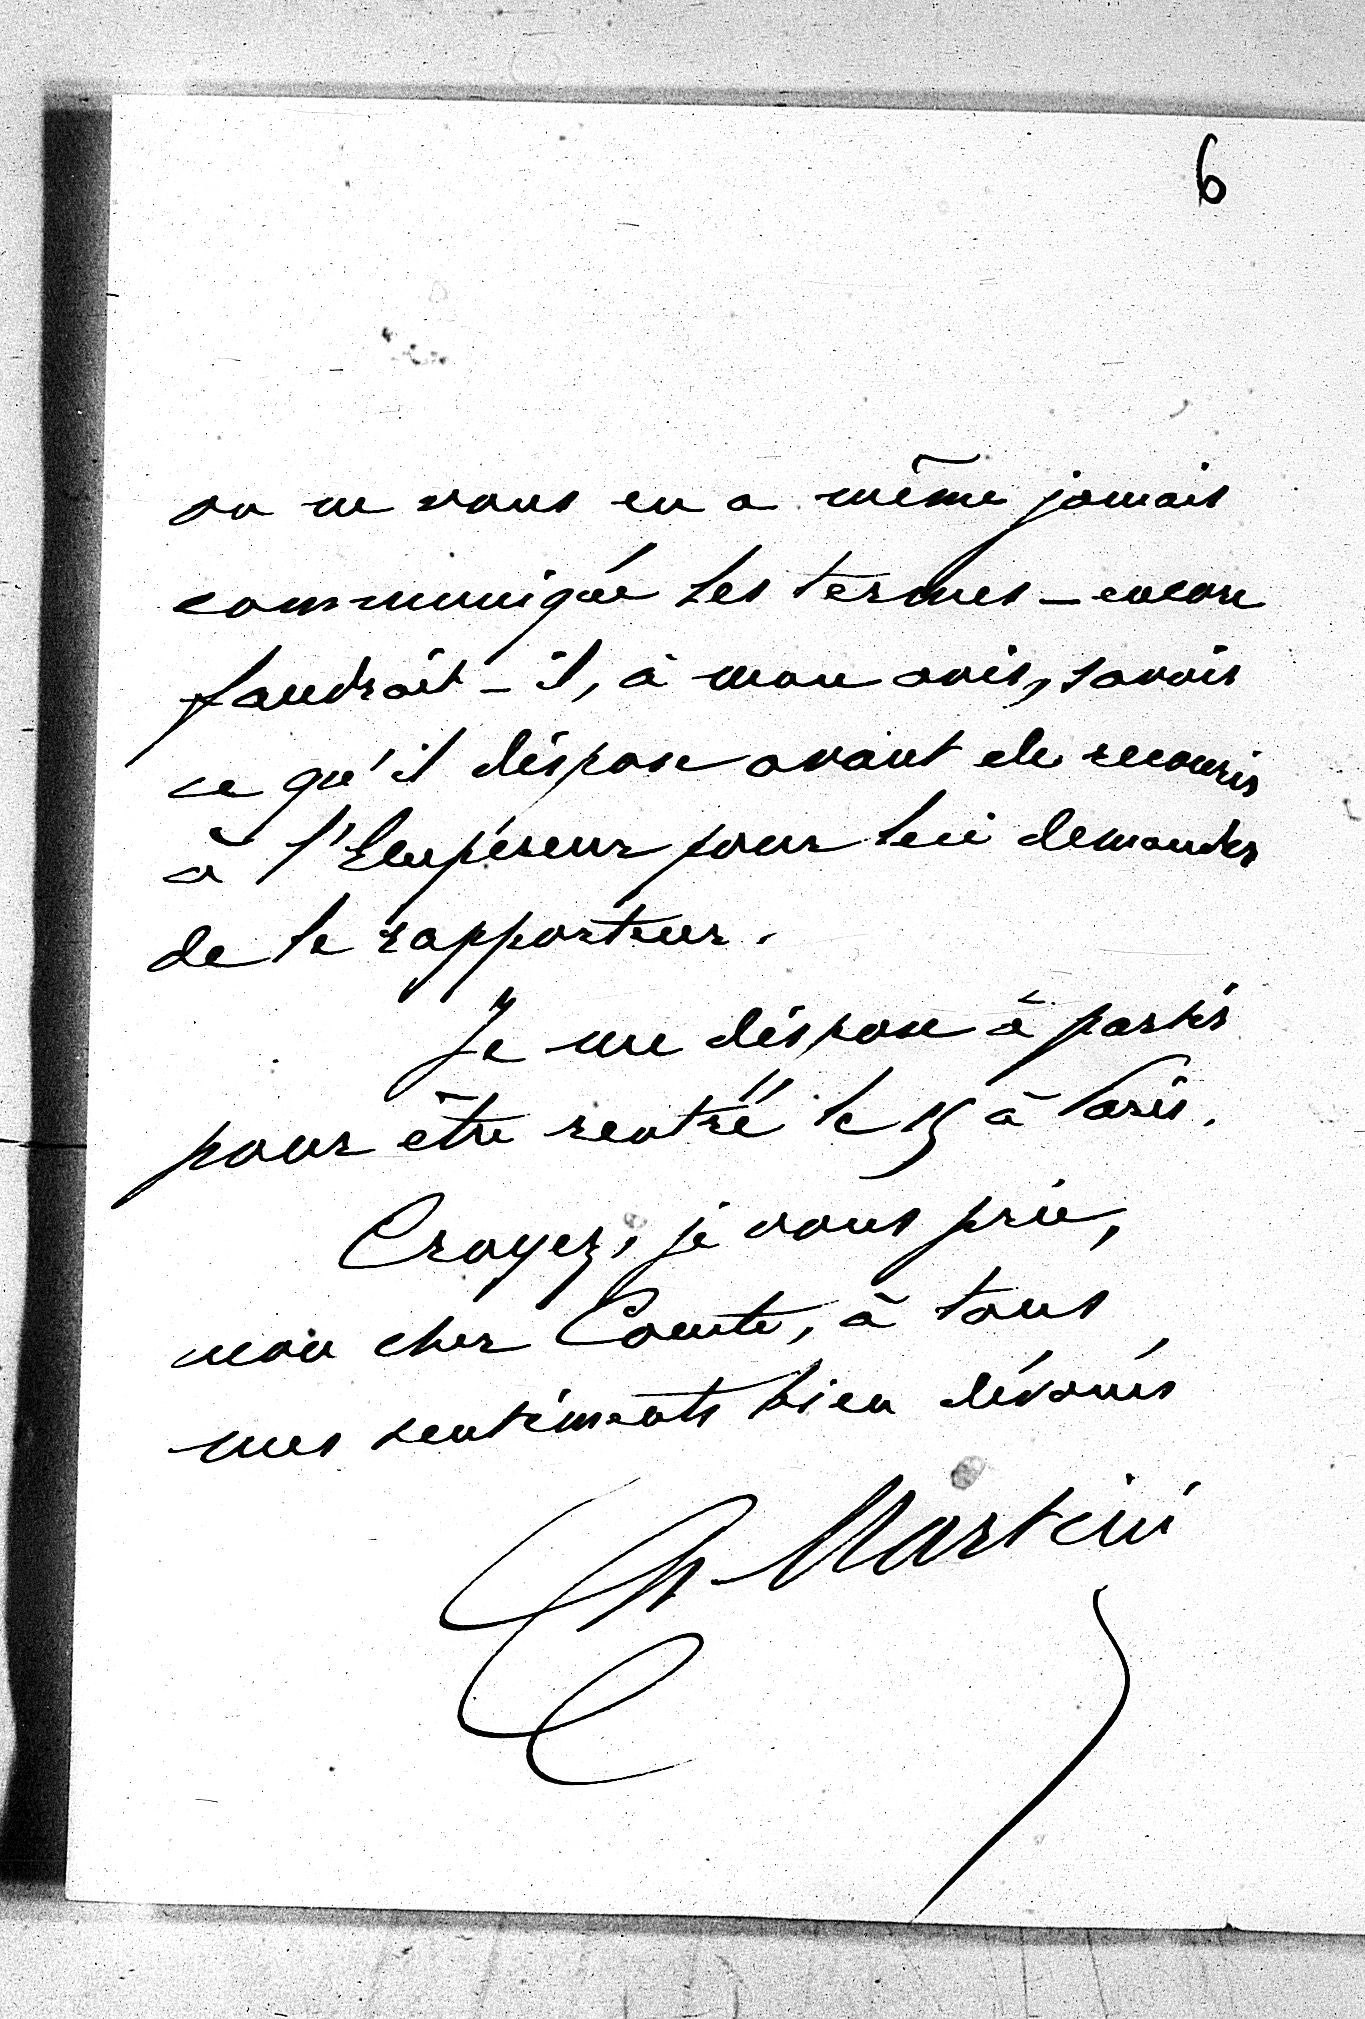 6
on ne vous en a même jamais
communiqué les termes - encore
faudrait-il, à mon avis, savoir
ce qu'il dispose avant de recourir
à l'Empereur pour lui demander
de le rapporter.
Je me dispose à partir
pour être rentré le 15 à Paris.
Croyez, je vous prie,
mon cher Comte, à tous
mes sentiments bien dévoués
Ch. Martini